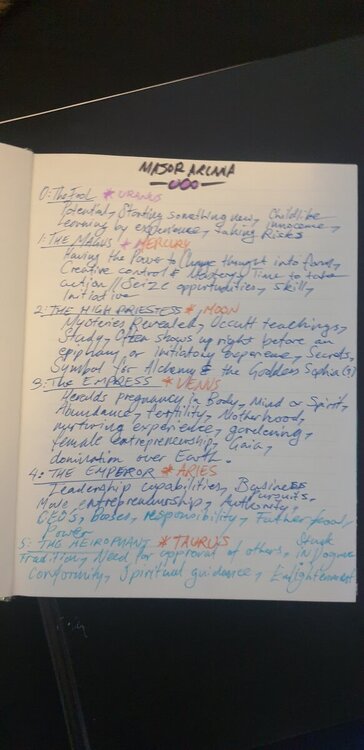 MAJOR ARCANA
0: The Fool * URANUS
Potential, Starting something new, Childlike
Learning by experience, taking Risks innocence,
1: THE MAGUS * MERCURY
Having the Power to Change thought into form,
Creative control & Mastery, Time to take
action // Seize opportunities, skill,
Initiative
2: THE HIGH PRIESTESS * MOON
Mysteries Revealed, Occult teachings,
Study, Often shows up right before an
epiphany or initiatory experience, Secrets,
Symbol for Alchemy & the Goddess Sophia
3: The EMPRESS * VENUS
Heralds pregnancy in Body, Mind or Spirit,
Abundance, fertility, Motherhood,
nurturing experience, gardening,
female entrepreneurship, Gaia,
domination over Earth.
4: THE EMPEROR * ARIES
Leadership capabilities, Business
Male entrepreneurship, Authority, Pursuits,
CEO'S, bosses, responsibility, Father food/
Power
5: THE HEIROPHANT * TAURUS Stuck
Tradition, Need for approval of others, in Dogma,
Conformity, Spiritual guidance, Enlightenment